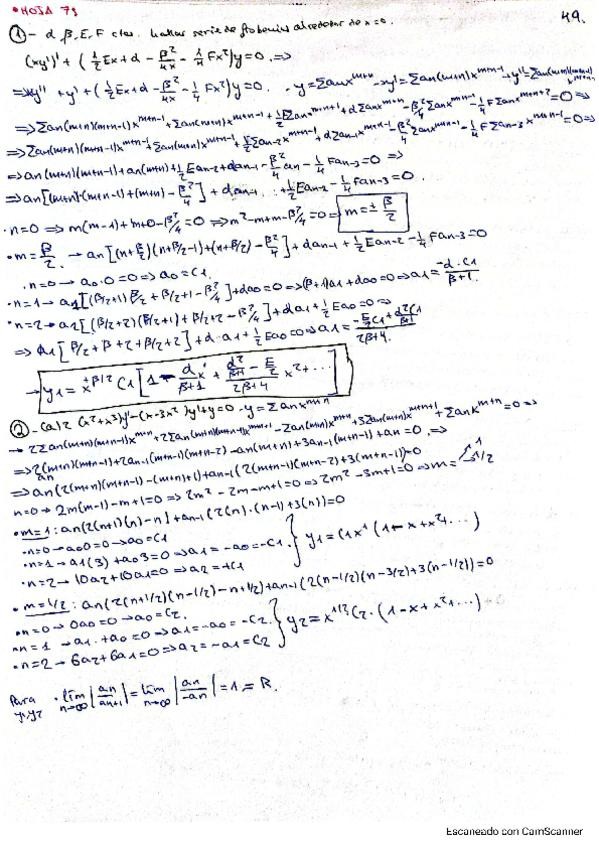 • HOJA 7ª
49.
① - α, β, E, F ctes. hallar serie de frobenius alrededor de x=0.
(xy')' + (½Ex + α - β²/4x - ¼Fx²)y = 0. ⇒
⇒ xy'' + y' + (½Ex + α - β²/4x - ¼Fx²)y = 0. - y = Σanx^m+n - y' = Σan(m+n)x^m+n-1 - y'' = Σan(m+n)(m+n-1)
⇒ Σan(m+n)(m+n-1)x^m+n-1 + Σan(m+n)x^m+n-1 + ½EΣanx^m+n+1 + αΣanx^m+n - β²/4 Σanx^m+n-1 - ¼FΣanx^m+n+2 = 0 ⇒
⇒ Σan(m+n)(m+n-1)x^m+n-1 + Σan(m+n)x^m+n-1 + ½EΣan-2x^m+n-1 + αΣan-1x^m+n-1 - β²/4 Σanx^m+n-1 - ¼FΣan-3x^m+n-1 = 0 ⇒
⇒ an(m+n)(m+n-1) + an(m+n) + ½Ean-2 + αan-1 - β²/4 an - ¼Fan-3 = 0 ⇒
⇒ an[(m+n)(m+n-1) + (m+n) - β²/4] + αan-1 + ½Ean-2 - ¼Fan-3 = 0.
• n=0 ⇒ m(m-1) + m+0 - β²/4 = 0 ⇒ m² - m + m - β²/4 = 0 ⇒ m = ± β/2
• m = β/2 → an[(n+β/2)(n+β/2-1) + (n+β/2) - β²/4] + αan-1 + ½Ean-2 - ¼Fan-3 = 0
• n=0 → a0·0 = 0 ⇒ a0 = C1.
• n=1 → a1[(β/2+1)β/2 + β/2+1 - β²/4] + αa0 = 0 ⇒ (β+1)a1 + αa0 = 0 ⇒ a1 = -α·C1/β+1.
• n=2 → a2[(β/2+2)(β/2+1) + β/2+2 - β²/4] + αa1 + ½Ea0 = 0 ⇒
⇒ a1[β/2 + β + 2 + β/2 + 2] + α·a1 + ½Ea0 = 0 ⇒ a1 = -E/2 C1 + α²C1/β+1 / 2β+4.
→ y1 = x^+β/2 C1 [1 - α/β+1 x¹ + α²/β+1 - E/2 / 2β+4 x² + ...]
② - (a) 2(x²+x³)y'' - (x-3x²)y' + y = 0 · y = Σanx^m+n
→ 2Σan(m+n)(m+n-1)x^m+n + 2Σan(m+n)(m+n-1)x^m+n+1 - Σan(m+n)x^m+n + 3Σan(m+n)x^m+n+1 + Σanx^m+n = 0 ⇒
⇒ 2an(m+n)(m+n-1) + 2an-1(m+n-1)(m+n-2) - an(m+n) + 3an-1(m+n-1) + an = 0. ⇒
⇒ an(2(m+n)(m+n-1) - (m+n) + 1) + an-1(2(m+n-1)(m+n-2) + 3(m+n-1)) = 0
n=0 ⇒ 2m(m-1) - m + 1 = 0 ⇒ 2m² - 2m - m + 1 = 0 ⇒ 2m² - 3m + 1 = 0 ⇒ m = 1 1/2
• m=1: an(2(n+1)(n) - n) + an-1(2(n)·(n-1) + 3(n)) = 0
• n=0 → a0·0 = 0 → a0 = C1
• n=1 → a1(3) + a0·3 = 0 ⇒ a1 = -a0 = -C1. } y1 = C1x¹(1 - x + x² + ...)
• n=2 → 10a2 + 10a1 = 0 ⇒ a2 = +C1
• m=1/2: an(2(n+1/2)(n-1/2) - n + 1/2) + an-1(2(n-1/2)(n-3/2) + 3(n-1/2)) = 0
• n=0 → 0a0 = 0 → a0 = C2.
• n=1 → a1 + a0 = 0 ⇒ a1 = -a0 = -C2. } y2 = x^1/2 C2·(1 - x + x² + ...)
• n=2 → 6a2 + 6a1 = 0 ⇒ a2 = -a1 = C2
Para y1, y2 • lim n→∞ |an/an+1| = lim n→∞ |an/-an| = 1 = R.
Escaneado con CamScanner